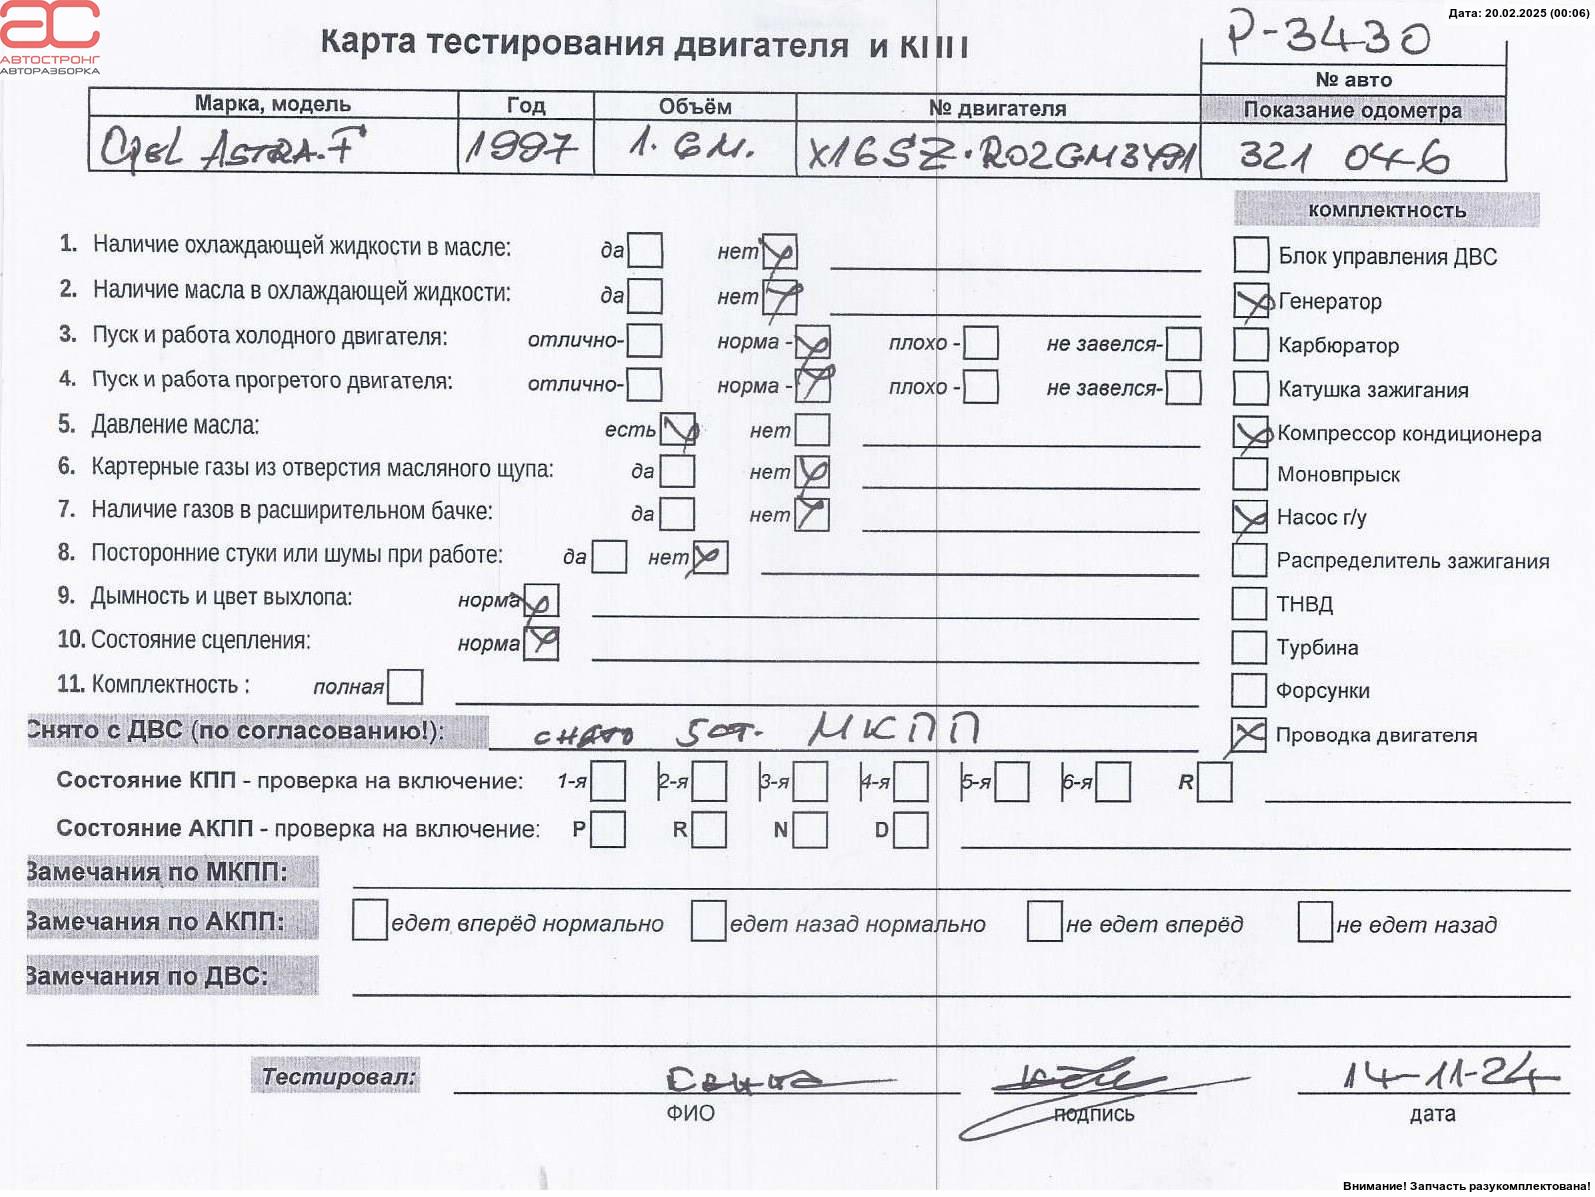 Дата: 20.02.2025 (00:06)
АВТОСТРОНГ
АВТОРАЗБОРКА
Карта тестирования двигателя и КПП
P-3430
№ авто
Марка, модель Год Объём № двигателя Показание одометра
Opel Astra.F 1997 1.6м. X16SZ. 321 046
комплектность
1. Наличие охлаждающей жидкости в масле: да нет
Блок управления ДВС
2. Наличие масла в охлаждающей жидкости: да нет
Генератор
3. Пуск и работа холодного двигателя: отлично- норма - плохо - не завелся-
Карбюратор
4. Пуск и работа прогретого двигателя: отлично- норма - плохо - не завелся-
Катушка зажигания
5. Давление масла: есть нет
Компрессор кондиционера
6. Картерные газы из отверстия масляного щупа: да нет
Моновпрыск
7. Наличие газов в расширительном бачке: да нет
Насос г/у
8. Посторонние стуки или шумы при работе: да нет
Распределитель зажигания
9. Дымность и цвет выхлопа: норма
ТНВД
10. Состояние сцепления: норма
Турбина
11. Комплектность : полная
Форсунки
Снято с ДВС (по согласованию!): снято 5ст. МКПП
Проводка двигателя
Состояние КПП - проверка на включение: 1-я 2-я 3-я 4-я 5-я 6-я R
Состояние АКПП - проверка на включение: P R N D
Замечания по МКПП:
Замечания по АКПП: едет вперёд нормально едет назад нормально не едет вперёд не едет назад
Замечания по ДВС:
Тестировал: 14-11-24
ФИО подпись дата
Внимание! Запчасть разукомплектована!